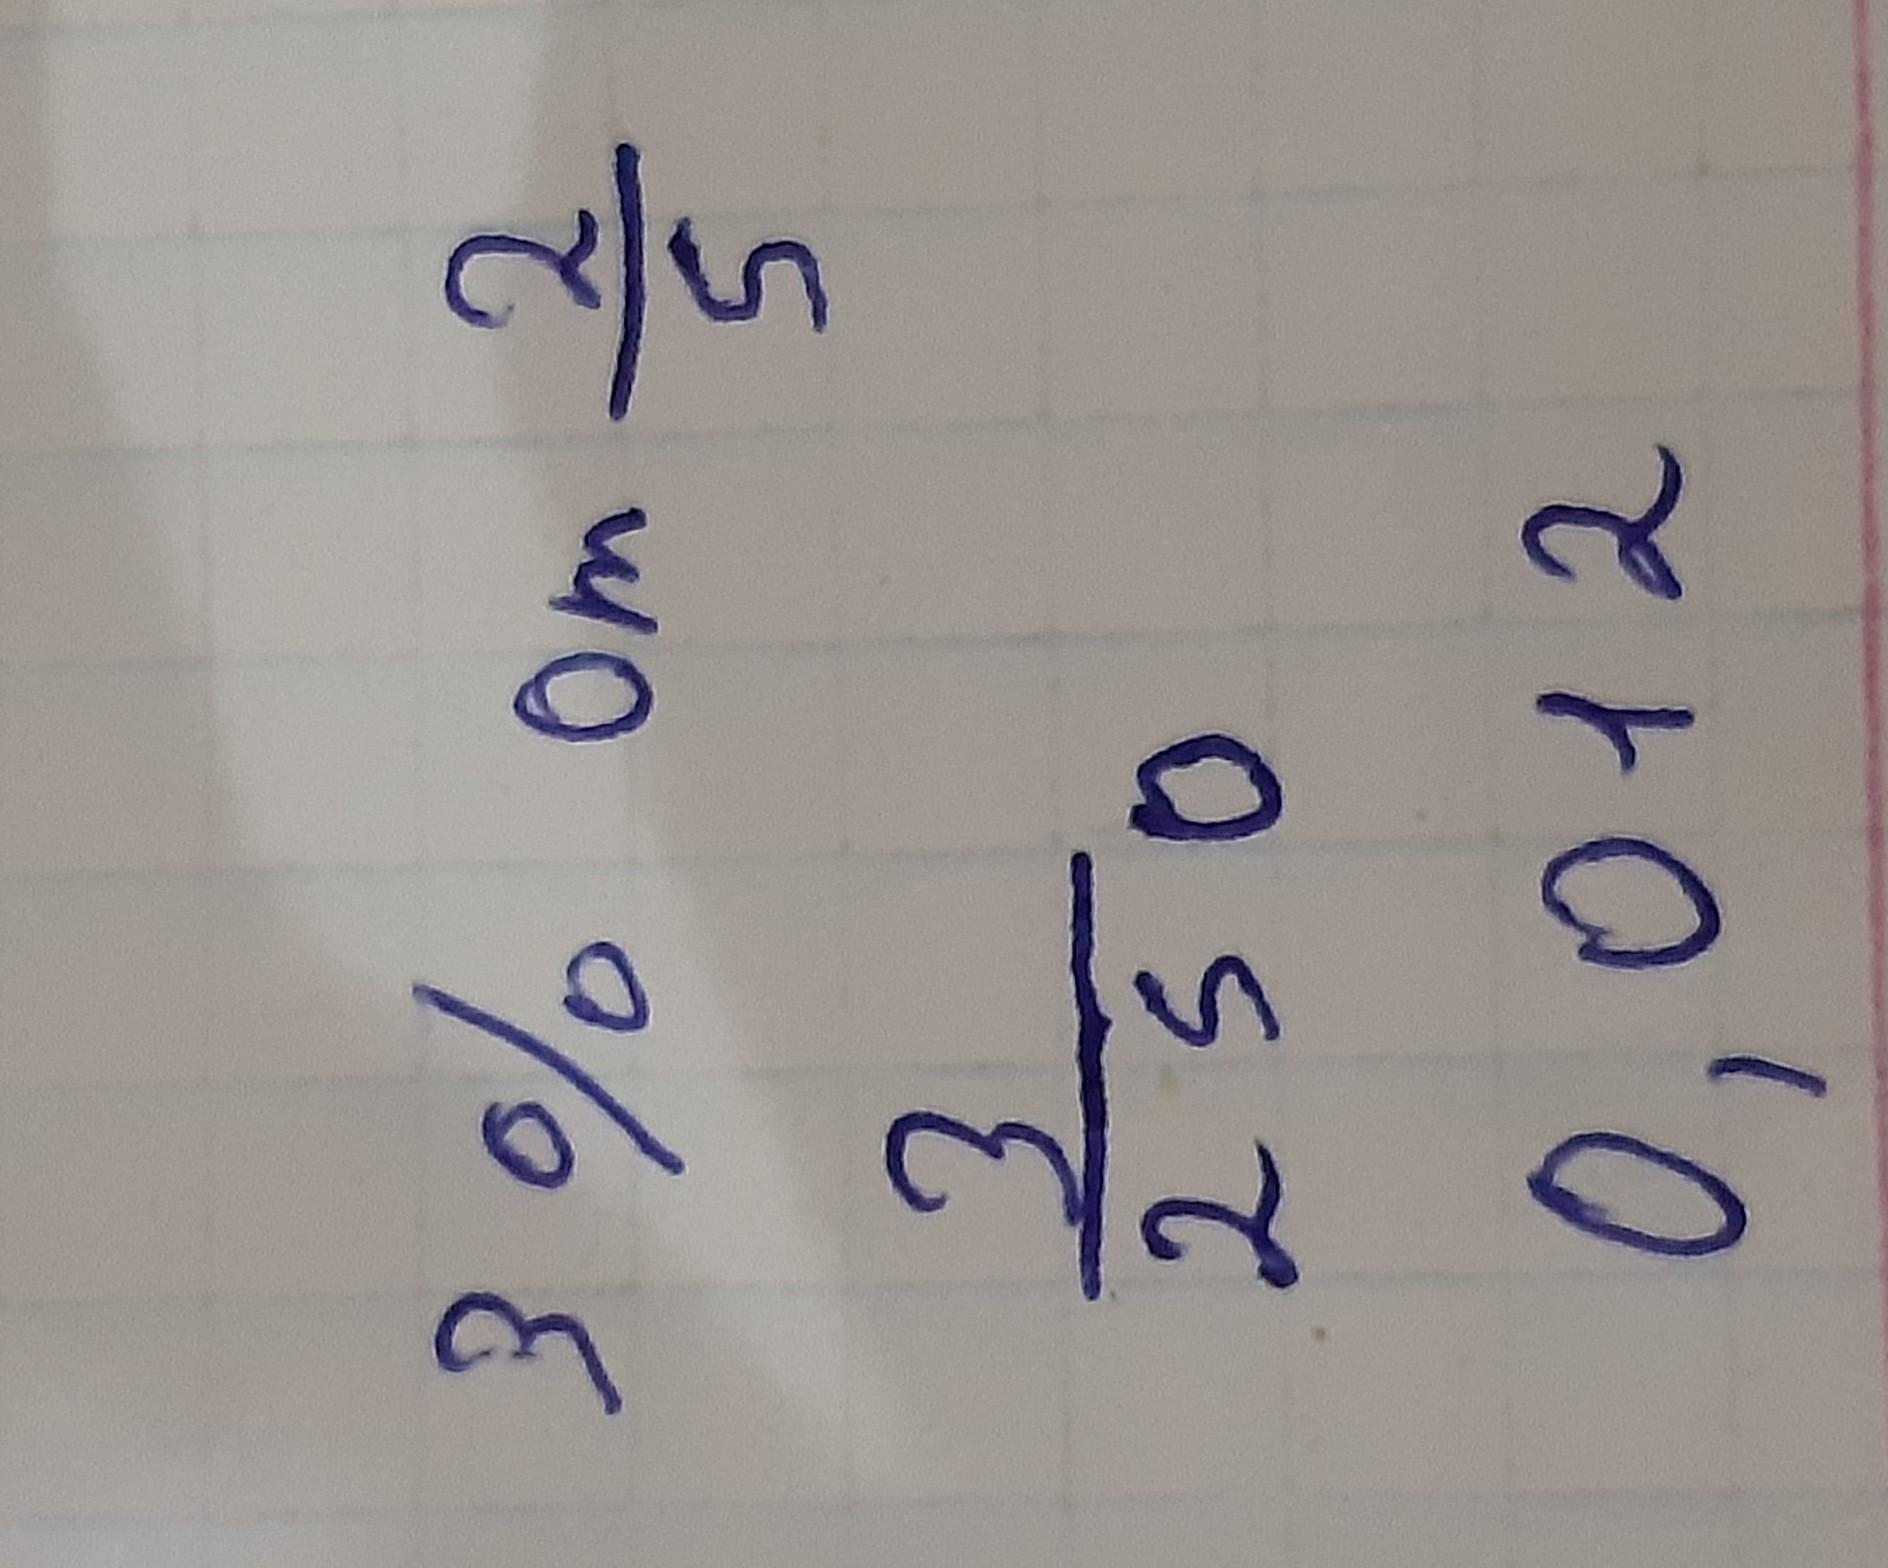 3 % от 2/5
3/250
0,012